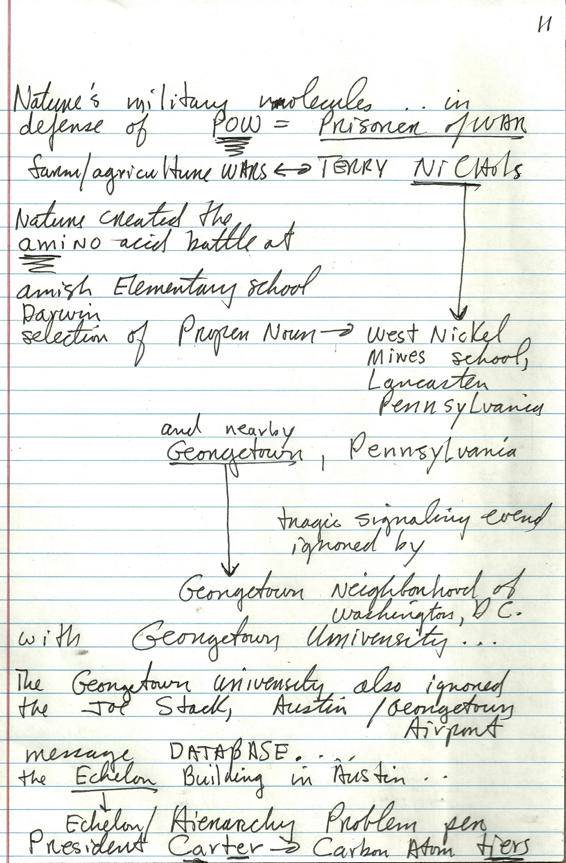 11
Nature's military molecules .. in
defense of POW = Prisoner of WAR
farm/agriculture WARS ↔ TERRY NiCHols
Nature created the
amiNO acid battle at
amish Elementary school
Darwin
selection of Proper Noun → West Nickel
Mines school,
Lancaster
Pennsylvania
and nearby
Georgetown, Pennsylvania
tragic signaling event
ignored by
Georgetown Neighborhood of
Washington, D.C.
with Georgetown University...
The Georgetown University also ignored
the Joe Stack, Austin / Georgetown
Airport
message DATABASE....
the Echelon Building in Austin ..
Echelon / Hierarchy Problem per
President Carter → Carbon Atom tiers